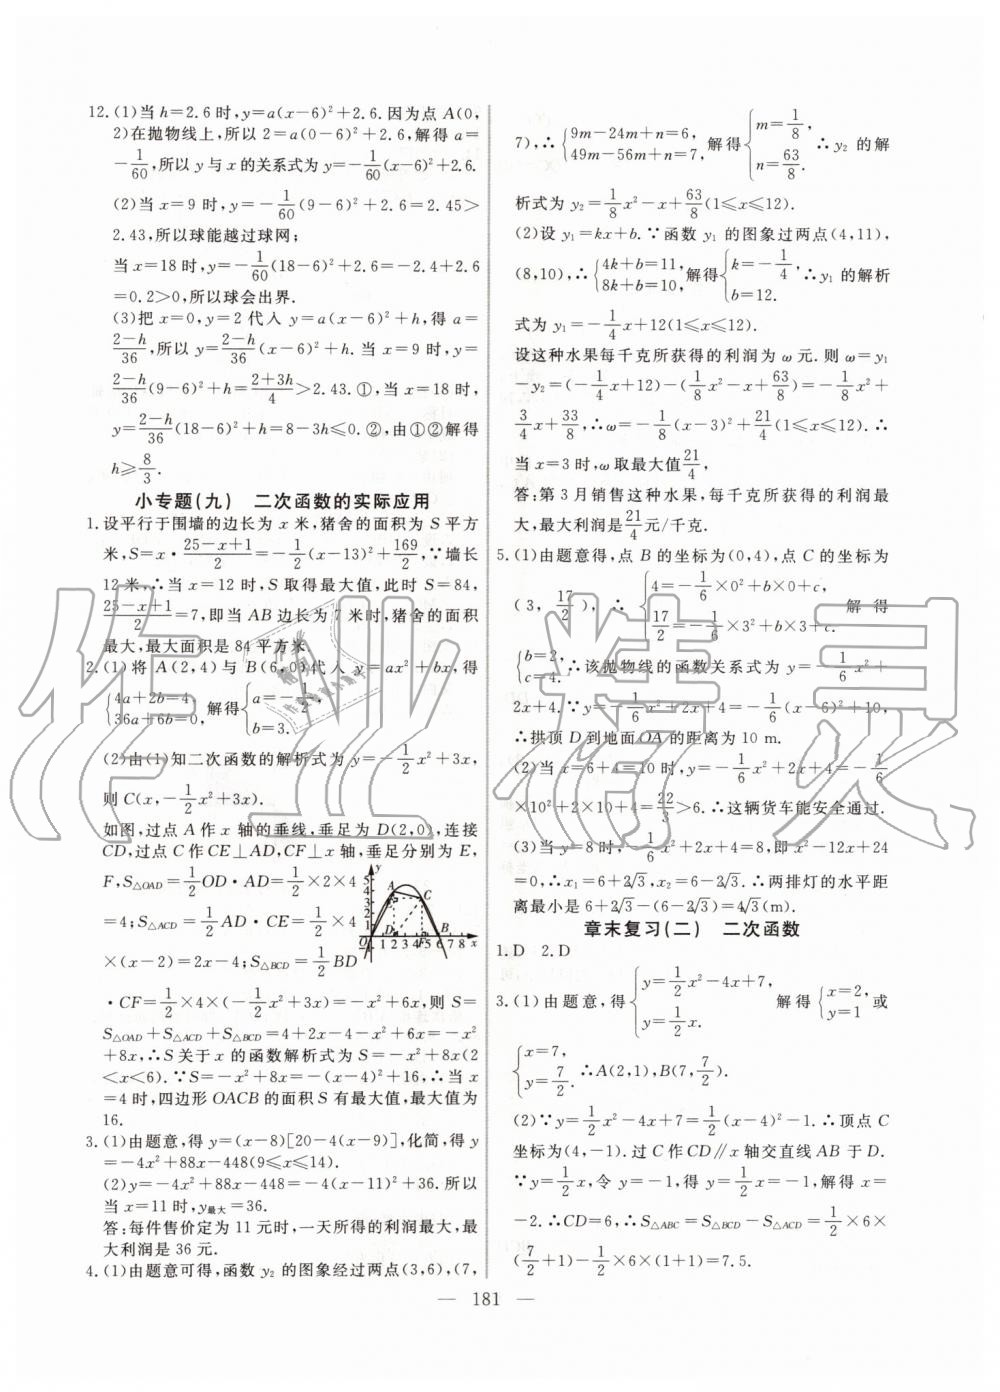 12.(1)当 h=2.6 时,y=a(x-6)²+2.6.因为点 A(0,
2)在抛物线上,所以 2=a(0-6)²+2.6,解得 a=
-1/60,所以 y 与 x 的关系式为 y=-1/60(x-6)²+2.6.
(2)当 x=9 时,y=-1/60(9-6)²+2.6=2.45>
2.43,所以球能越过球网;
当 x=18 时,y=-1/60(18-6)²+2.6=-2.4+2.6
=0.2>0,所以球会出界.
(3)把 x=0,y=2 代入 y=a(x-6)²+h,得 a=
(2-h)/36,y=(2-h)/36(x-6)²+h.当 x=9 时,y=
(2-h)/36(9-6)²+h=(2+3h)/4>2.43.①,当 x=18 时,
y=(2-h)/36(18-6)²+h=8-3h≤0.②,由①②解得
h≥8/3.
小专题(九) 二次函数的实际应用
1.设平行于围墙的边长为 x 米,猪舍的面积为 S 平方
米,S=x·(25-x+1)/2=-1/2(x-13)²+169/2,∵墙长
12 米,∴当 x=12 时,S 取得最大值,此时 S=84,
(25-x+1)/2=7,即当 AB 边长为 7 米时,猪舍的面积
最大,最大面积是 84 平方米
2.(1)将 A(2,4)与 B(6,0)代入 y=ax²+bx,得
{4a+2b=4, 36a+6b=0, 解得{a=-1/2, b=3.
(2)由(1)知二次函数的解析式为 y=-1/2x²+3x,
则 C(x,-1/2x²+3x).
如图,过点 A 作 x 轴的垂线,垂足为 D(2,0),连接
CD,过点 C 作 CE⊥AD,CF⊥x 轴,垂足分别为 E,
F,S△OAD=1/2OD·AD=1/2×2×4
=4;S△ACD=1/2AD·CE=1/2×4
×(x-2)=2x-4;S△BCD=1/2BD
·CF=1/2×4×(-1/2x²+3x)=-x²+6x,则 S=
S△OAD+S△ACD+S△BCD=4+2x-4-x²+6x=-x²
+8x,∴S 关于 x 的函数解析式为 S=-x²+8x(2
<x<6).∵S=-x²+8x=-(x-4)²+16,∴当 x
=4 时,四边形 OACB 的面积 S 有最大值,最大值为
16.
3.(1)由题意,得 y=(x-8)[20-4(x-9)],化简,得 y
=-4x²+88x-448(9≤x≤14).
(2)y=-4x²+88x-448=-4(x-11)²+36.所以
当 x=11 时,y最大=36.
答:每件售价定为 11 元时,一天所得的利润最大,最
大利润是 36 元.
4.(1)由题意可得,函数 y₂ 的图象经过两点(3,6),(7,
7),∴{9m-24m+n=6, 49m-56m+n=7, 解得{m=1/8, n=63/8. ∴y₂ 的解
析式为 y₂=1/8x²-x+63/8(1≤x≤12).
(2)设 y₁=kx+b.∵函数 y₁ 的图象过两点(4,11),
(8,10),∴{4k+b=11, 8k+b=10, 解得{k=-1/4, b=12. ∴y₁ 的解析
式为 y₁=-1/4x+12(1≤x≤12).
设这种水果每千克所获得的利润为 ω 元.则 ω=y₁
-y₂=(-1/4x+12)-(1/8x²-x+63/8)=-1/8x²+
3/4x+33/8,∴ω=-1/8(x-3)²+21/4(1≤x≤12).∴
当 x=3 时,ω 取最大值21/4,
答:第 3 月销售这种水果,每千克所获得的利润最
大,最大利润是21/4元/千克.
5.(1)由题意得,点 B 的坐标为(0,4),点 C 的坐标为
(3,17/2),∴{4=-1/6×0²+b×0+c, 17/2=-1/6×3²+b×3+c, 解得
{b=2, c=4. ∴该抛物线的函数关系式为 y=-1/6x²+
2x+4.∵y=-1/6x²+2x+4=-1/6(x-6)²+10,
∴拱顶 D 到地面 OA 的距离为 10 m.
(2)当 x=6+4=10 时,y=-1/6x²+2x+4=-1/6
×10²+2×10+4=22/3>6.∴这辆货车能安全通过.
(3)当 y=8 时,-1/6x²+2x+4=8,即 x²-12x+24
=0,∴x₁=6+2√3,x₂=6-2√3.∴两排灯的水平距
离最小是 6+2√3-(6-2√3)=4√3(m).
章末复习(二) 二次函数
1.D 2.D
3.(1)由题意,得{y=1/2x²-4x+7, y=1/2x. 解得{x=2, y=1 或
{x=7, y=7/2. ∴A(2,1),B(7,7/2).
(2)∵y=1/2x²-4x+7=1/2(x-4)²-1.∴顶点 C
坐标为(4,-1).过 C 作 CD∥x 轴交直线 AB 于 D.
∵y=1/2x,令 y=-1,得1/2x=-1,解得 x=
-2.∴CD=6,∴S△ABC=S△BCD-S△ACD=1/2×6×
(7/2+1)-1/2×6×(1+1)=7.5.
— 181 —
作业精灵